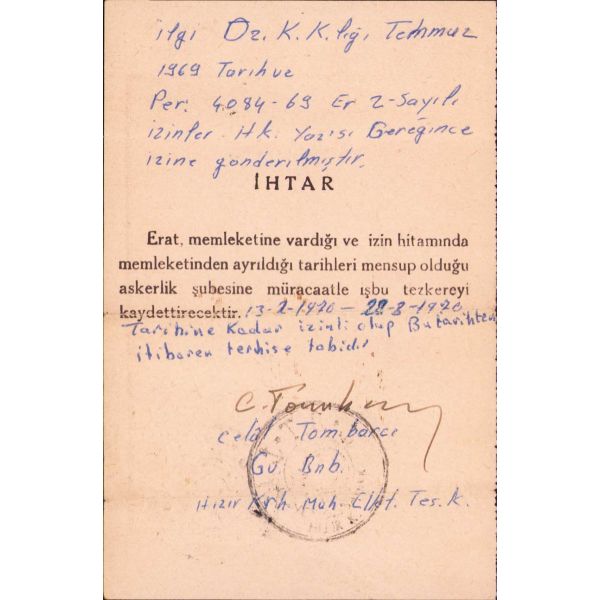 ilgi Dz. K. K.lığı Temmuz
1969 Tarih ve
Per: 4084-69 Er 2-Sayılı
izinler Hk. Yazısı Gereğince
izine gönderilmiştir.
İHTAR
Erat, memleketine vardığı ve izin hitamında
memleketinden ayrıldığı tarihleri mensup olduğu
askerlik şubesine müracaatle işbu tezkereyi
kaydettirecektir. 13-2-1970 - 28-3-1970
Tarihine Kadar izinli olup Bu tarihten
itibaren terhise tabidir
Celal Tombarcı
Gv. Bnb.
Hızır Krh. Muh. Elkt. Tes. K.